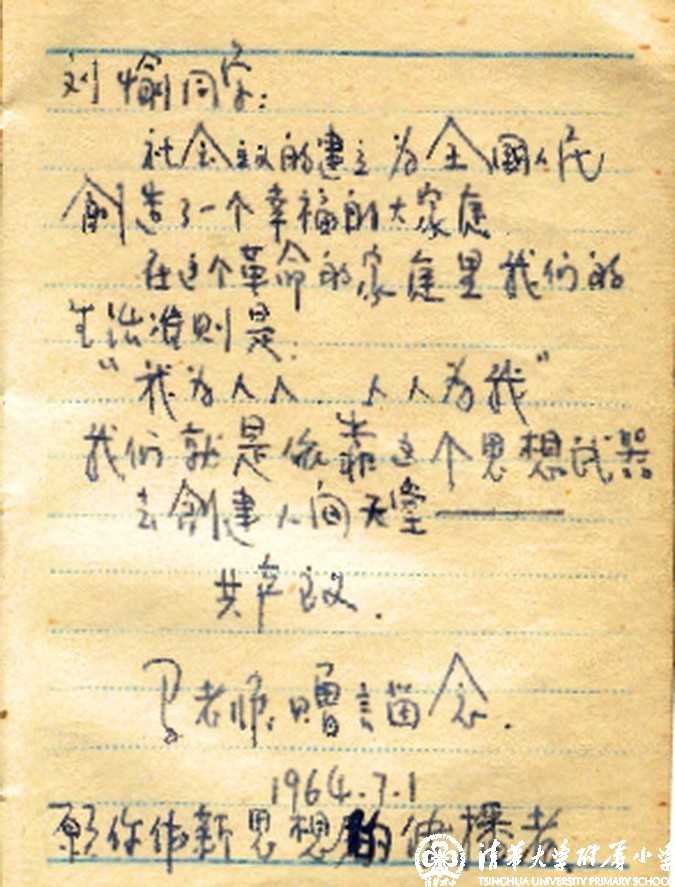 刘愉同学:
社会主义的建立为全國人民
創造了一个幸福的大家庭.
在这个革命的家庭里我们的
生活准则是.
"我为人人．人人为我"
我们就是依靠这个思想武器
去創建人间天堂——
共产主义.
老师.赠言留念.
1964.7.1
願你作新思想的传播者
清华大学附属小学
TSINGHUA UNIVERSITY PRIMARY SCHOOL